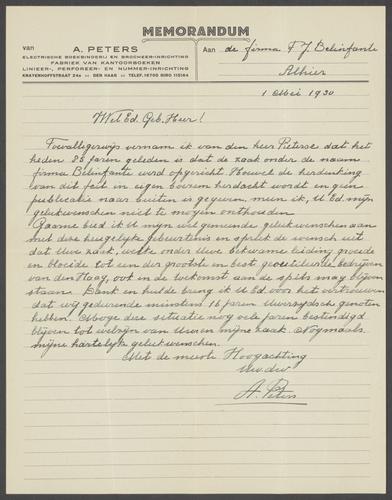 MEMORANDUM
van
A. PETERS
ELECTRISCHE BOEKBINDERIJ EN BROCHEER-INRICHTING
FABRIEK VAN KANTOORBOEKEN
LINIEER-, PERFOREER- EN NUMMER-INRICHTING
KRAYENHOFFSTRAAT 24a :: DEN HAAG :: TELEF. 16700 GIRO 115164
Aan de firma F J Belinfante
Alhier
1 Mei 1930
Wel Ed. Geb. Heer!
Toevalligerwijs vernam ik van den heer Pieterse dat het
heden 85 jaren geleden is dat de zaak onder de naam
firma Belinfante werd opgericht. Hoewel de herdenking
van dit feit in eigen boezem herdacht wordt en geen
publicatie naar buiten is gegeven, meen ik, U Ed. mijn
gelukwenschen niet te mogen onthouden.
Gaarne bied ik U mijn welgemeende gelukwenschen aan
met deze heugelijke gebeurtenis en spreek de wensch uit
dat Uwe zaak, welke onder Uwe bekwame leiding groeide
en bloeide tot een der grootste en best geoutilleerde bedrijven
van den Haag, ook in de toekomst aan de spits mag blijven
staan. Dank en hulde breng ik U Ed. voor het vertrouwen
dat wij gedurende minstens 16 jaren Uwerzijds genoten
hebben. Moge deze situatie nog vele jaren bestendigd
blijven tot welzijn van Uwe en mijne zaak. Nogmaals
mijne hartelijke gelukwenschen.
Met de meeste Hoogachting
Uw dw
A. Peters